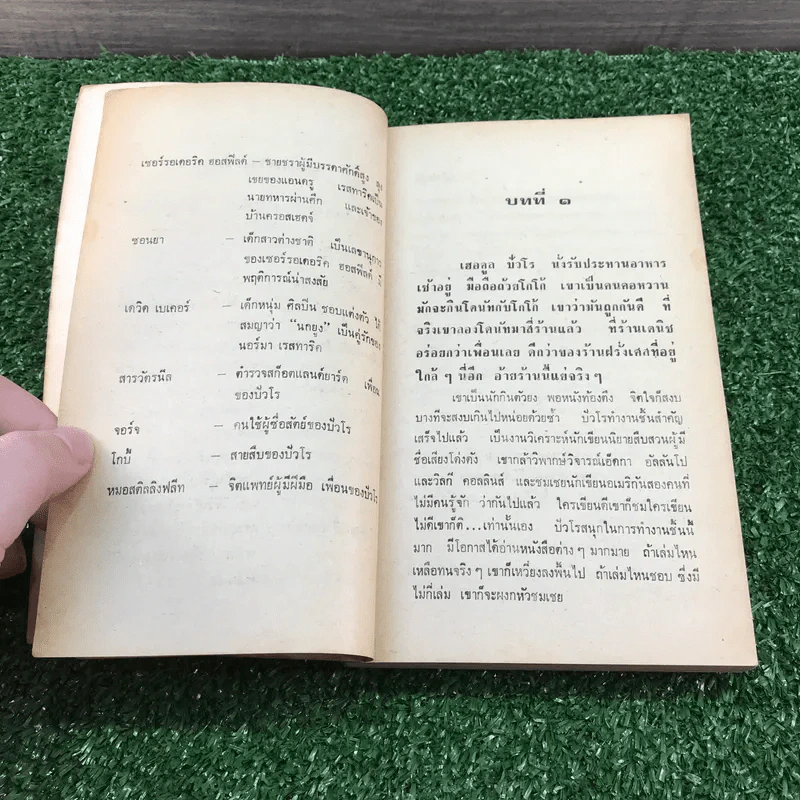 เซอร์รอเดอริค ฮอสฟีลด์ – ชายชราผู้มีบรรดาศักดิ์สูง ลุง
เขยของแอนดรู เรสทาริคเป็น
นายทหารผ่านศึก และเจ้าของ
บ้านครอสเฮดจ์
ซอนยา – เด็กสาวต่างชาติ เป็นเลขานุการ
ของเซอร์รอเดอริค ฮอสฟีลด์ มี
พฤติการณ์น่าสงสัย
เดวิด เบเคอร์ – เด็กหนุ่ม ศิลปิน ชอบแต่งตัว ได้
สมญาว่า “นกยูง” เป็นคู่รักของ
นอร์มา เรสทาริค
สารวัตรนีล – ตำรวจสก็อตแลนด์ยาร์ด เพื่อน
ของปัวโร
จอร์จ – คนใช้ผู้ซื่อสัตย์ของปัวโร
โกบี้ – สายสืบของปัวโร
หมอสติลลิงฟลีท – จิตแพทย์ผู้มีฝีมือ เพื่อนของปัวโร
บทที่ ๑
เฮอคูล ปัวโร นั่งรับประทานอาหาร
เช้าอยู่ มือถือถ้วยโกโก้ เขาเป็นคนคอหวาน
มักจะกินโดนัทกับโกโก้ เขาว่ามันถูกกันดี ที่
จริงเขาลองโดนัทมาสี่ร้านแล้ว ที่ร้านเดนิช
อร่อยกว่าเพื่อนเลย ดีกว่าของร้านฝรั่งเศสที่อยู่
ใกล้ ๆ นี่อีก อ้ายร้านนี้แย่จริง ๆ
เขาเป็นนักกินตัวยง พอหนังท้องตึง จิตใจก็สงบ
บางทีจะสงบเกินไปหน่อยด้วยซ้ำ ปัวโรทำงานชิ้นสำคัญ
เสร็จไปแล้ว เป็นงานวิเคราะห์นักเขียนนิยายสืบสวนผู้มี
ชื่อเสียงโด่งดัง เขากล้าวิพากษ์วิจารณ์เอ็ดกา อัลลันโป
และวิลกี คอลลินส์ และชมเชยนักเขียนอเมริกันสองคนที่
ไม่มีคนรู้จัก ว่ากันไปแล้ว ใครเขียนดีเขาก็ชมใครเขียน
ไม่ดีเขาก็ติ...เท่านั้นเอง ปัวโรสนุกในการทำงานชิ้นนี้
มาก มีโอกาสได้อ่านหนังสือต่าง ๆ มากมาย ถ้าเล่มไหน
เหลือทนจริง ๆ เขาก็เหวี่ยงลงพื้นไป ถ้าเล่มไหนชอบ ซึ่งมี
ไม่กี่เล่ม เขาก็จะผงกหัวชมเชย